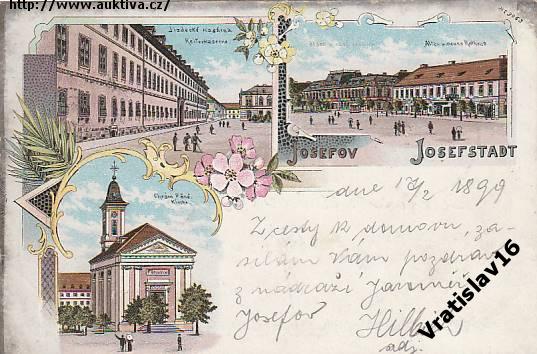 http://www.auktiva.cz/
Jízdecká kasárna
Reiterkaserne
Altes u. neues Rathaus
Josefov
Josefstadt
Kirche
dne 17/2 1899
Z cesty k domovu, za-
sílám Vám pozdrav
z nádraží Jaroměř
Josefov
adj.
Vratislav16